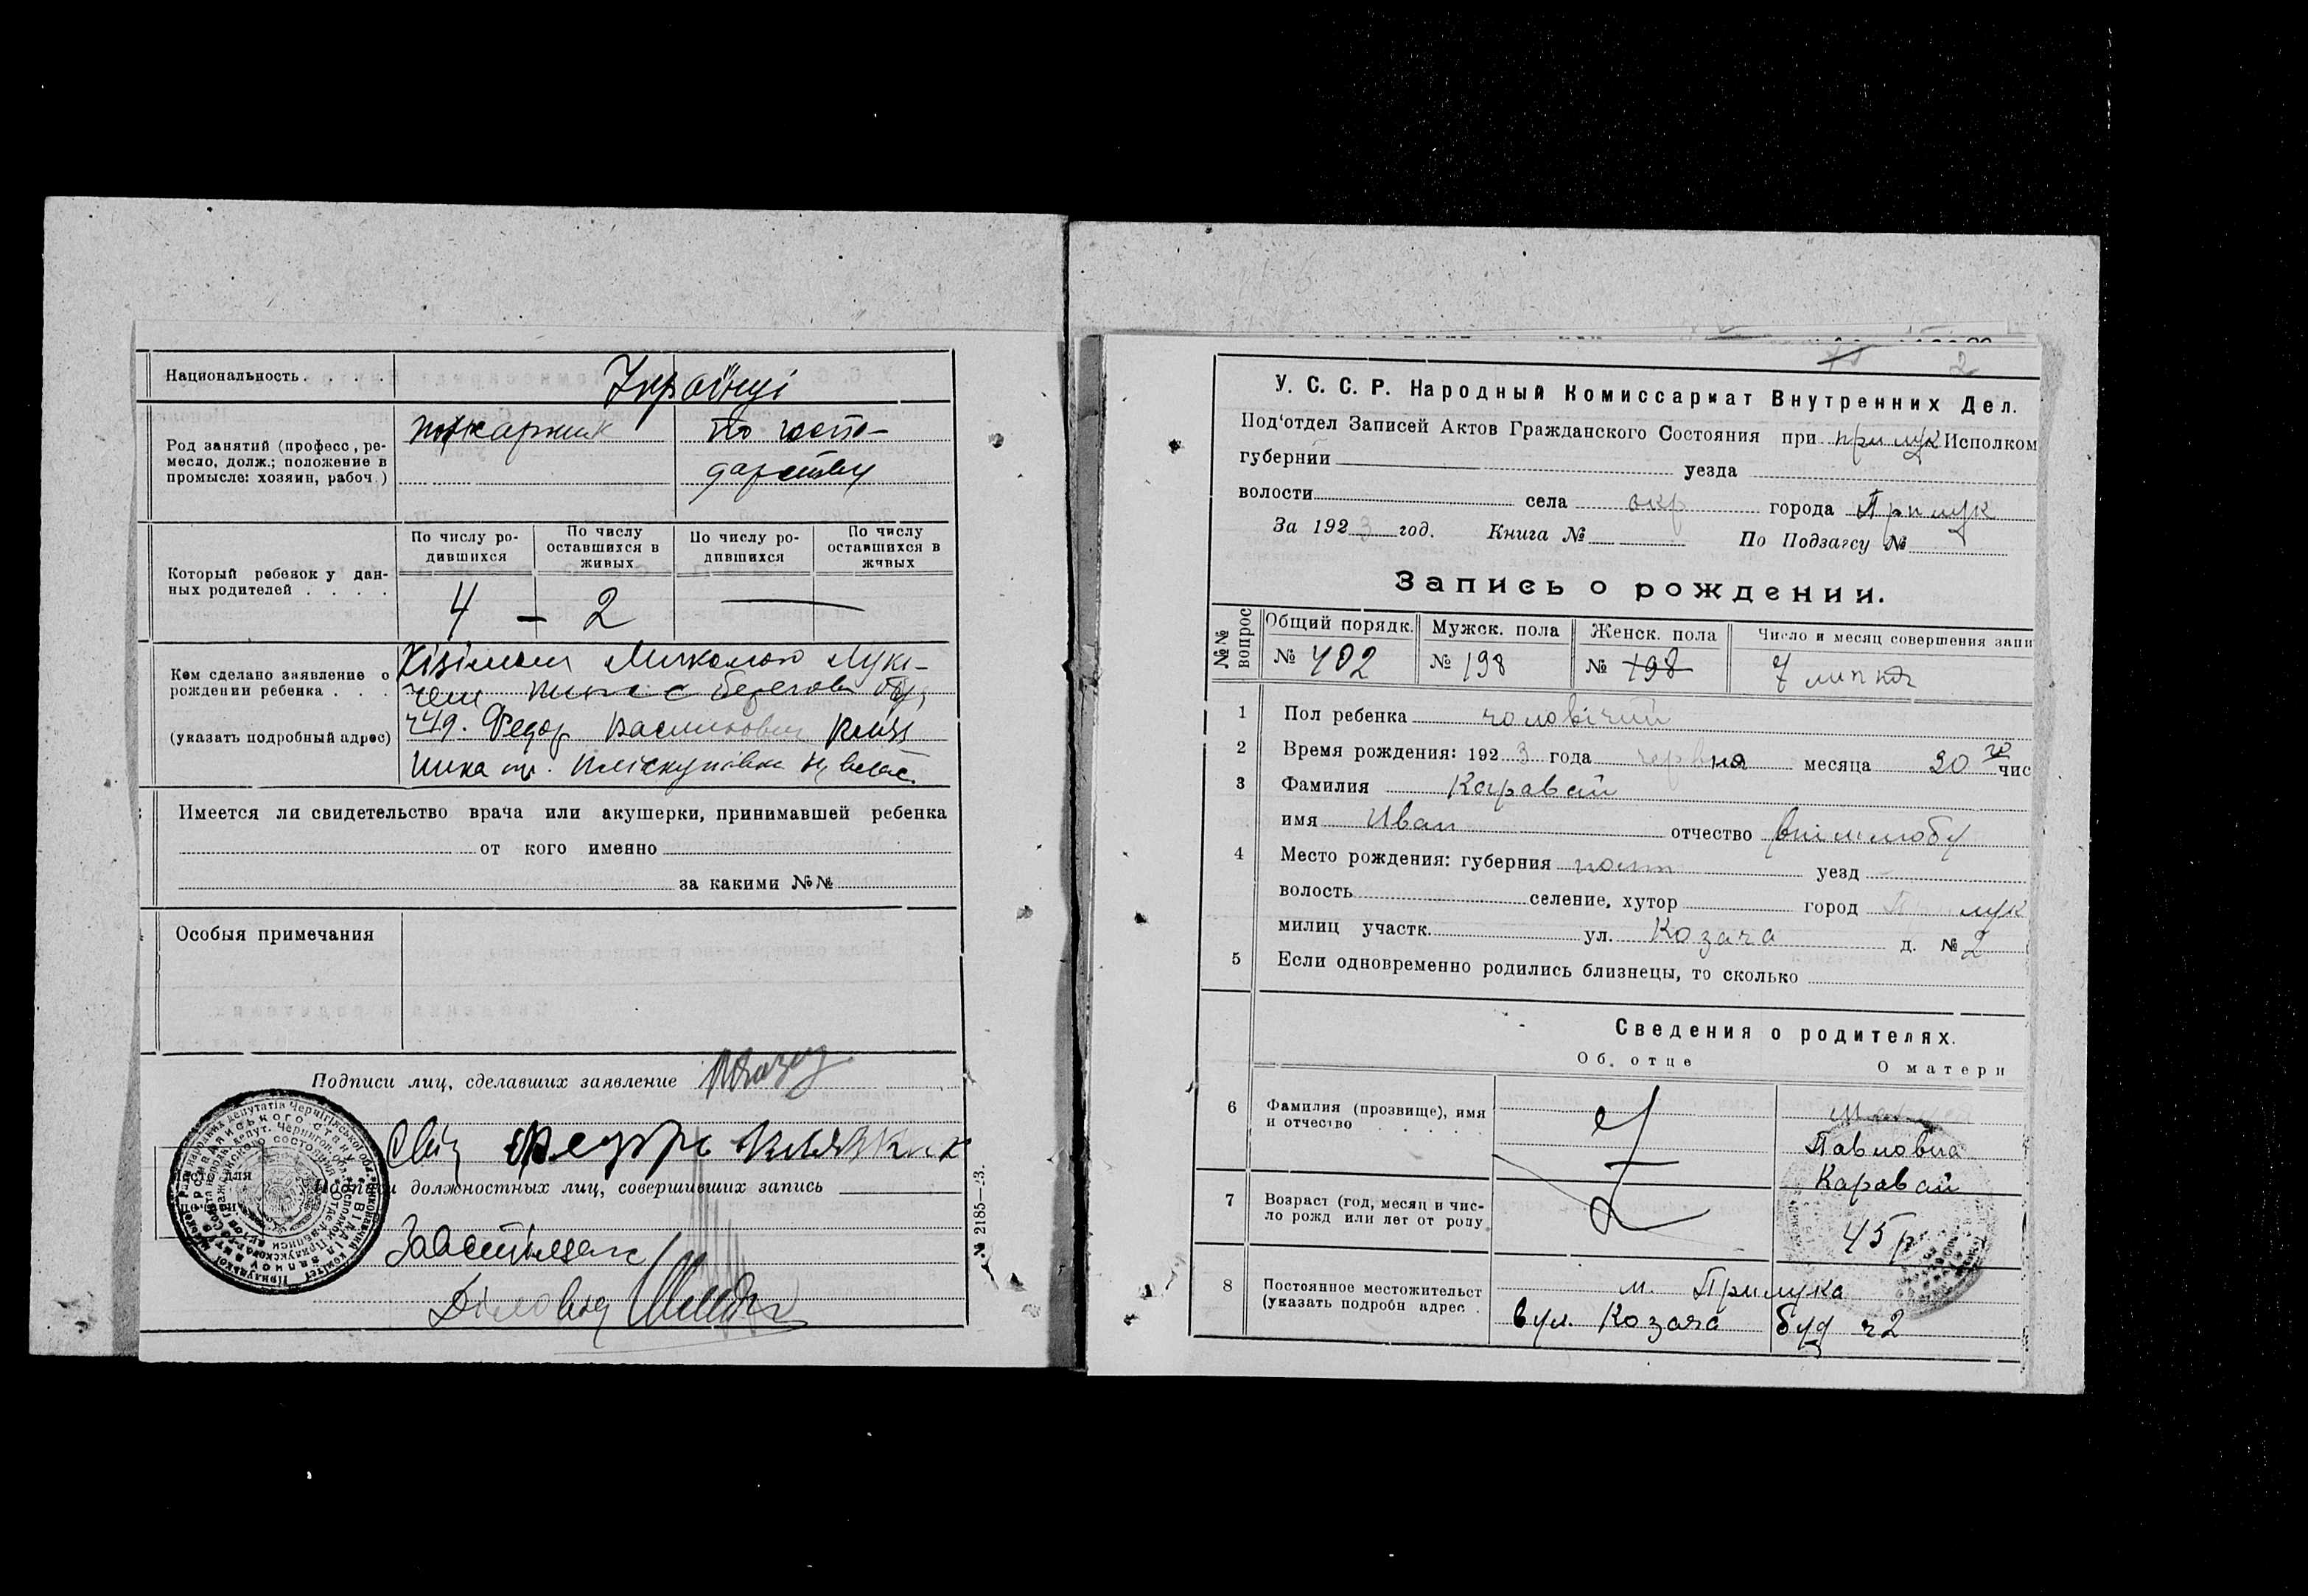 Национальность.
Українці
Род занятий (професс, ре-
месло, долж.; положение в
промысле: хозяин, рабоч.)
по госпо-
дарству
По числу ро-
дившихся
По числу
оставшихся в
живых
По числу ро-
дившихся
По числу
оставшихся в
живых
Который ребенок у дан-
ных родителей
4 — 2
Кем сделано заявление о
рождении ребенка
(указать подробный адрес)
Федор Василович
Имеется ли свидетельство врача или акушерки, принимавшей ребенка
от кого именно
за какими №№
Особыя примечания
Подписи лиц, сделавших заявление
Подписи должностных лиц, совершивших запись
Діловод
№ 2185—23.
2
У. С. С. Р. Народный Комиссариат Внутренних Дел.
Под'отдел Записей Актов Гражданского Состояния при Прилук Исполком
губернии уезда
волости села окр города Прилук
За 1923 год. Книга № По Подзагсу №
Запись о рождении.
№№ вопрос
Общий порядк. Мужск. пола Женск. пола Число и месяц совершения запи
№ 402 № 198 № 198 7 липня
1 Пол ребенка чоловічий
2 Время рождения: 1923 года червня месяца 20 го чис
3 Фамилия Каравай
имя Иван отчество
4 Место рождения: губерния полт уезд
волость селение, хутор город Прилук
милиц участк. ул. Козача д. № 2
5 Если одновременно родились близнецы, то сколько
Сведения о родителях.
Об. отце О матери
6 Фамилия (прозвище), имя
и отчество
Павловна
Каравай
7 Возраст (год, месяц и чис-
ло рожд или лет от роду
45 р
8 Постоянное местожительст
(указать подробн адрес .
м. Прилука
вул. Козача буд ч 2